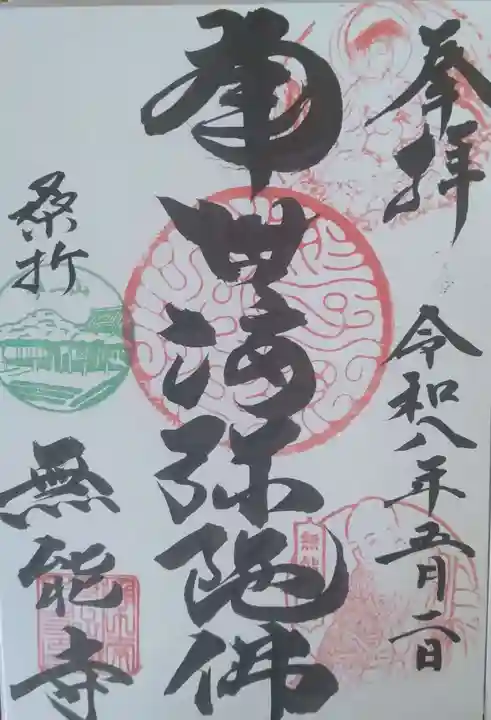 奉拝
令和八年五月二日
四海弥陀佛
桑折
無能寺
無能